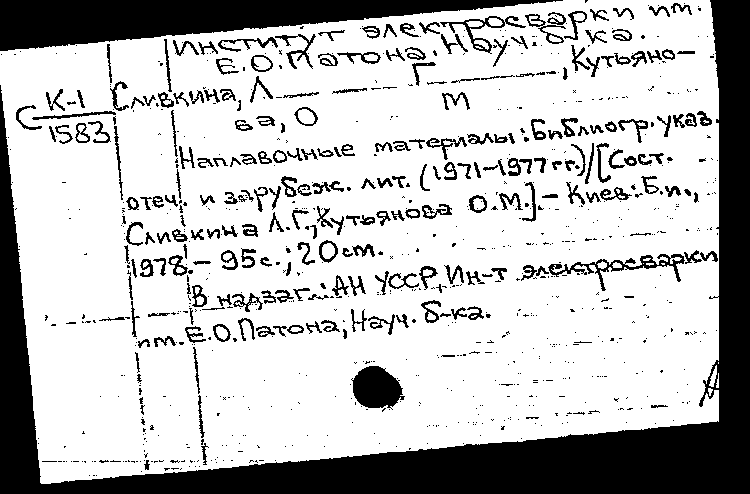 Институт электросварки им.
Е.О.Патона. Науч. б-ка.
К-1 Сливкина, Л Г , Кутьяно-
С 1583 ва, О М
Наплавочные материалы: Библиогр. указ.
отеч. и зарубеж. лит. (1971-1977 гг.)/[Сост.
Сливкина Л.Г., Кутьянова О.М.]. - Киев: Б.и.,
1978. - 95 с.; 20 см.
В надзаг.: АН УССР, Ин-т электросварки
им. Е.О.Патона, Науч. б-ка.